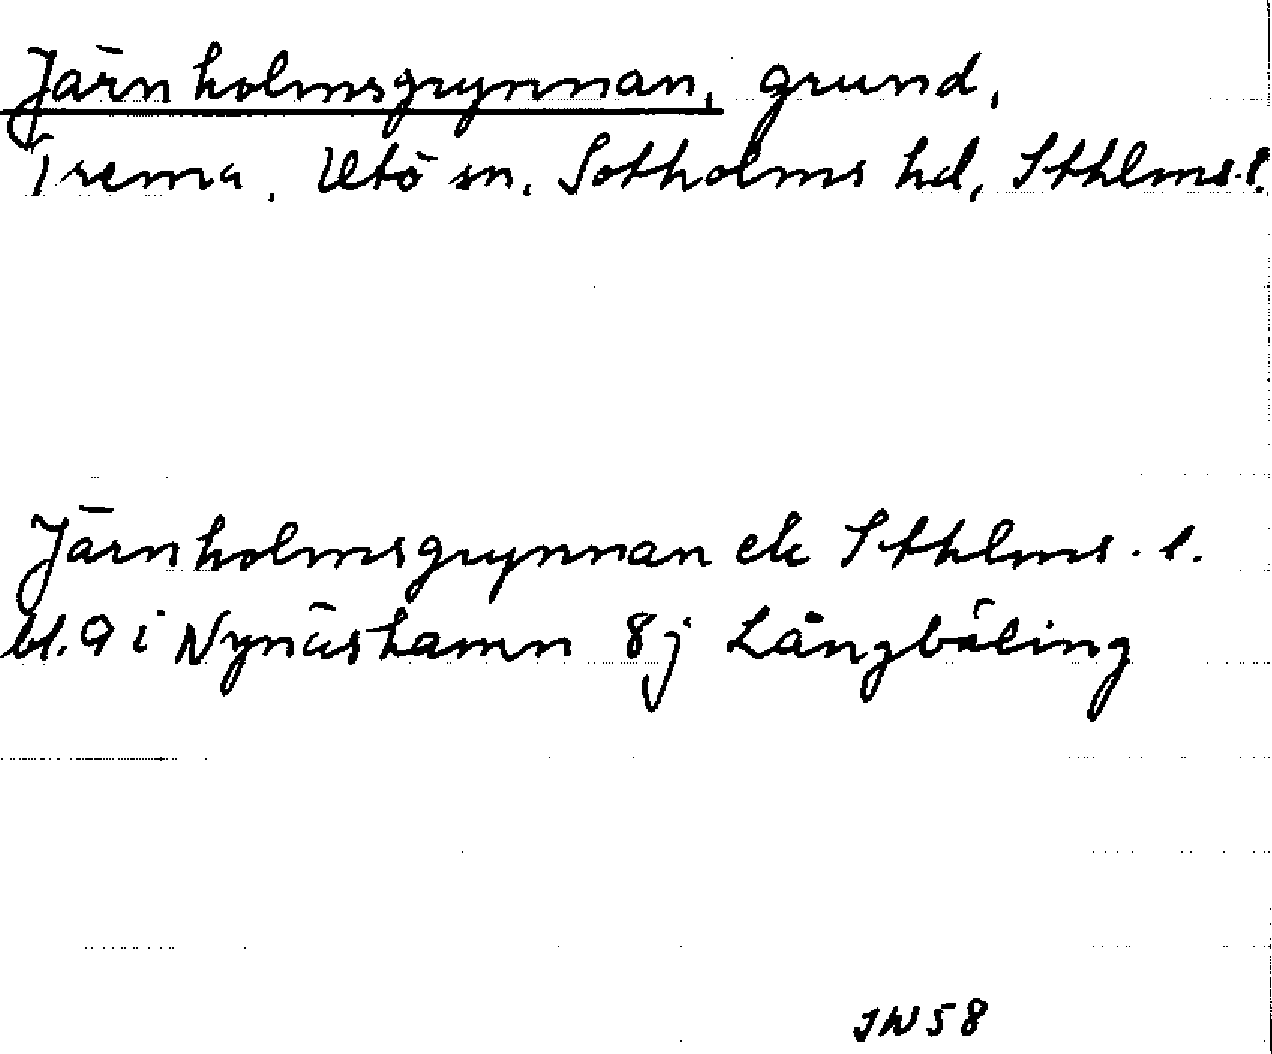 Järnholmsgrynnan, grund,
Trema, Utö sn, Sotholms hd, Sthlms. l.
Järnholmsgrynnan ek Sthlms. l.
bl. 9 i Nynäshamn 8j Långbäling
JW 58